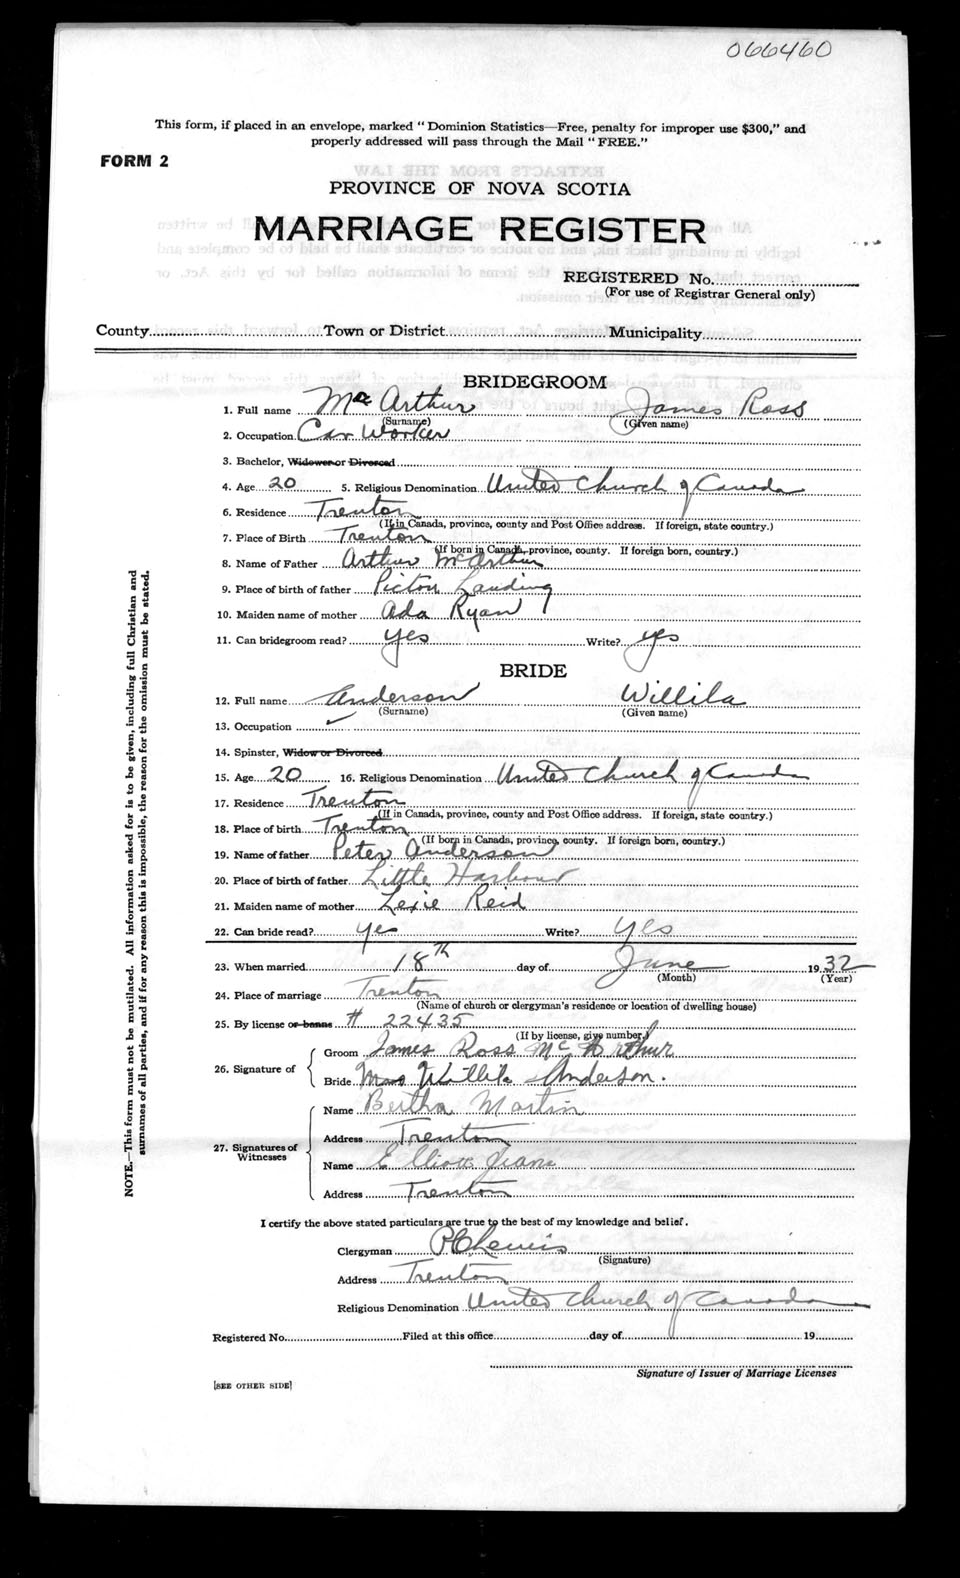 066460
This form, if placed in an envelope, marked "Dominion Statistics—Free, penalty for improper use $300," and
properly addressed will pass through the Mail "FREE."
FORM 2
PROVINCE OF NOVA SCOTIA
MARRIAGE REGISTER
REGISTERED No.
(For use of Registrar General only)
County Town or District Municipality
BRIDEGROOM
1. Full name McArthur James Ross
(Surname) (Given name)
2. Occupation Car Worker
3. Bachelor, Widower or Divorced
4. Age 20 5. Religious Denomination United Church of Canada
6. Residence Trenton
(If in Canada, province, county and Post Office address. If foreign, state country.)
7. Place of Birth Trenton
(If born in Canada, province, county. If foreign born, country.)
8. Name of Father Arthur McArthur
9. Place of birth of father Pictou Landing
10. Maiden name of mother Ada Ryan
11. Can bridegroom read? yes Write? yes
BRIDE
12. Full name Anderson Willila
(Surname) (Given name)
13. Occupation
14. Spinster, Widow or Divorced
15. Age 20 16. Religious Denomination United Church of Canada
17. Residence Trenton
(If in Canada, province, county and Post Office address. If foreign, state country.)
18. Place of birth Trenton
(If born in Canada, province, county. If foreign born, country.)
19. Name of father Peter Anderson
20. Place of birth of father Little Harbour
21. Maiden name of mother Lexie Reid
22. Can bride read? yes Write? yes
23. When married 18th day of June 1932
(Month) (Year)
24. Place of marriage Trenton
(Name of church or clergyman's residence or location of dwelling house)
25. By license or banns # 22435
(If by license, give number.)
26. Signature of
Groom James Ross McArthur
Bride Willila Anderson.
27. Signatures of Witnesses
Name Bertha Martin
Address Trenton
Name Elliott
Address Trenton
I certify the above stated particulars are true to the best of my knowledge and belief.
Clergyman Lewis
(Signature)
Address Trenton
Religious Denomination United Church of Canada
Registered No. Filed at this office day of 19
Signature of Issuer of Marriage Licenses
[SEE OTHER SIDE]
NOTE.—This form must not be mutilated. All information asked for is to be given, including full Christian and
surnames of all parties, and if for any reason this is impossible, the reason for the omission must be stated.